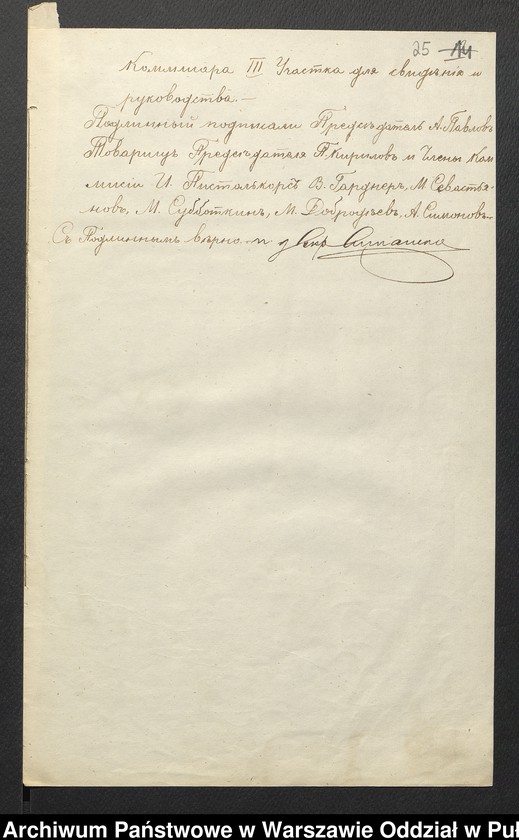 25 14
Коммисара III Участка для свиденія и
руководства.—
Подлинный подписали Председатель А. Павловъ
Товарищъ Председателя П. Кириловъ и Члены Ком
мисіи И. Пистолькорсъ В. Гарднеръ, М. Севастья-
новъ, М. Субботкинъ, М. Добродѣевъ, А. Симоновъ.
Съ Подлиннымъ вѣрно
Archiwum Państwowe w Warszawie Oddział w Puł